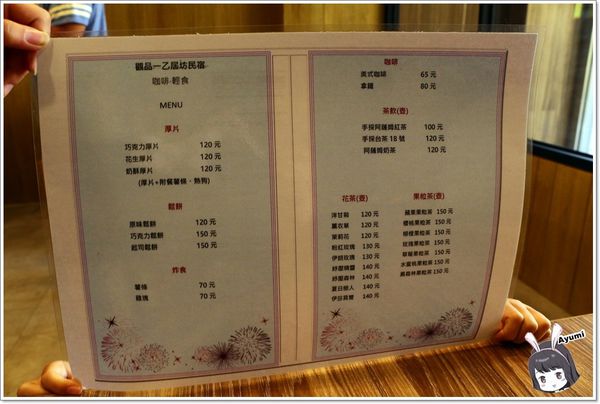 觀品一乙居坊民宿
咖啡‧輕食
MENU
厚片
巧克力厚片 120 元
花生厚片 120 元
奶酥厚片 120 元
(厚片+附餐薯條、熱狗)
鬆餅
原味鬆餅 120 元
巧克力鬆餅 150 元
起司鬆餅 150 元
炸食
薯條 70 元
雞塊 70 元
咖啡
美式咖啡 65 元
拿鐵 80 元
茶飲(壺)
手採阿薩姆紅茶 100 元
手採台茶 18 號 120 元
阿薩姆奶茶 120 元
花茶(壺)
洋甘菊 120 元
薰衣草 120 元
茉莉花 120 元
粉紅玫瑰 130 元
伊朗玫瑰 130 元
紓壓精靈 140 元
紓壓森林 140 元
夏日戀人 140 元
伊莎貝爾 140 元
果粒茶(壺)
蘋果果粒茶 150 元
櫻桃果粒茶 150 元
柳橙果粒茶 150 元
玫瑰果粒茶 150 元
草莓果粒茶 150 元
水蜜桃果粒茶 150 元
黑森林果粒茶 150 元
Ayumi